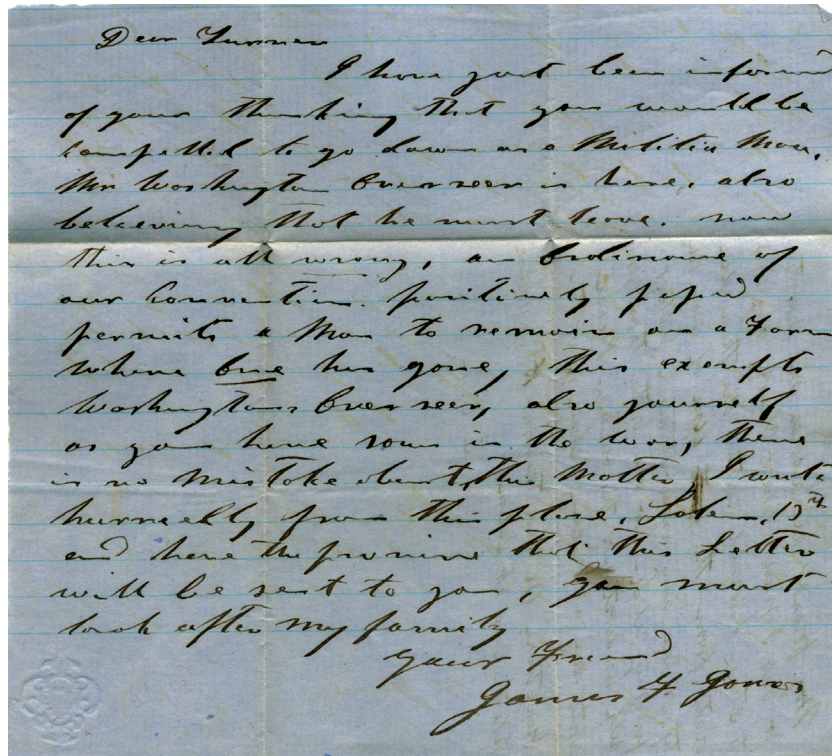 Dear Turner
I have just been informd
of your thinking that you would be
compelled to go down as a Militia Man,
Mr Washington Overseer is here, also
believing that he must leave. now
this is all wrong, an Ordinance of
our Convention. positively passed
permits a Man to remain on a Farm
where one has gone, this exempts
Washingtons Overseer, also yourself
as you have sons in the war, there
is no mistake about this Matter, I write
hurriedly from this place, Salem, 17th
and have the promise that this Letter
will be sent to you, you must
look after my family
your Friend
James F Jones